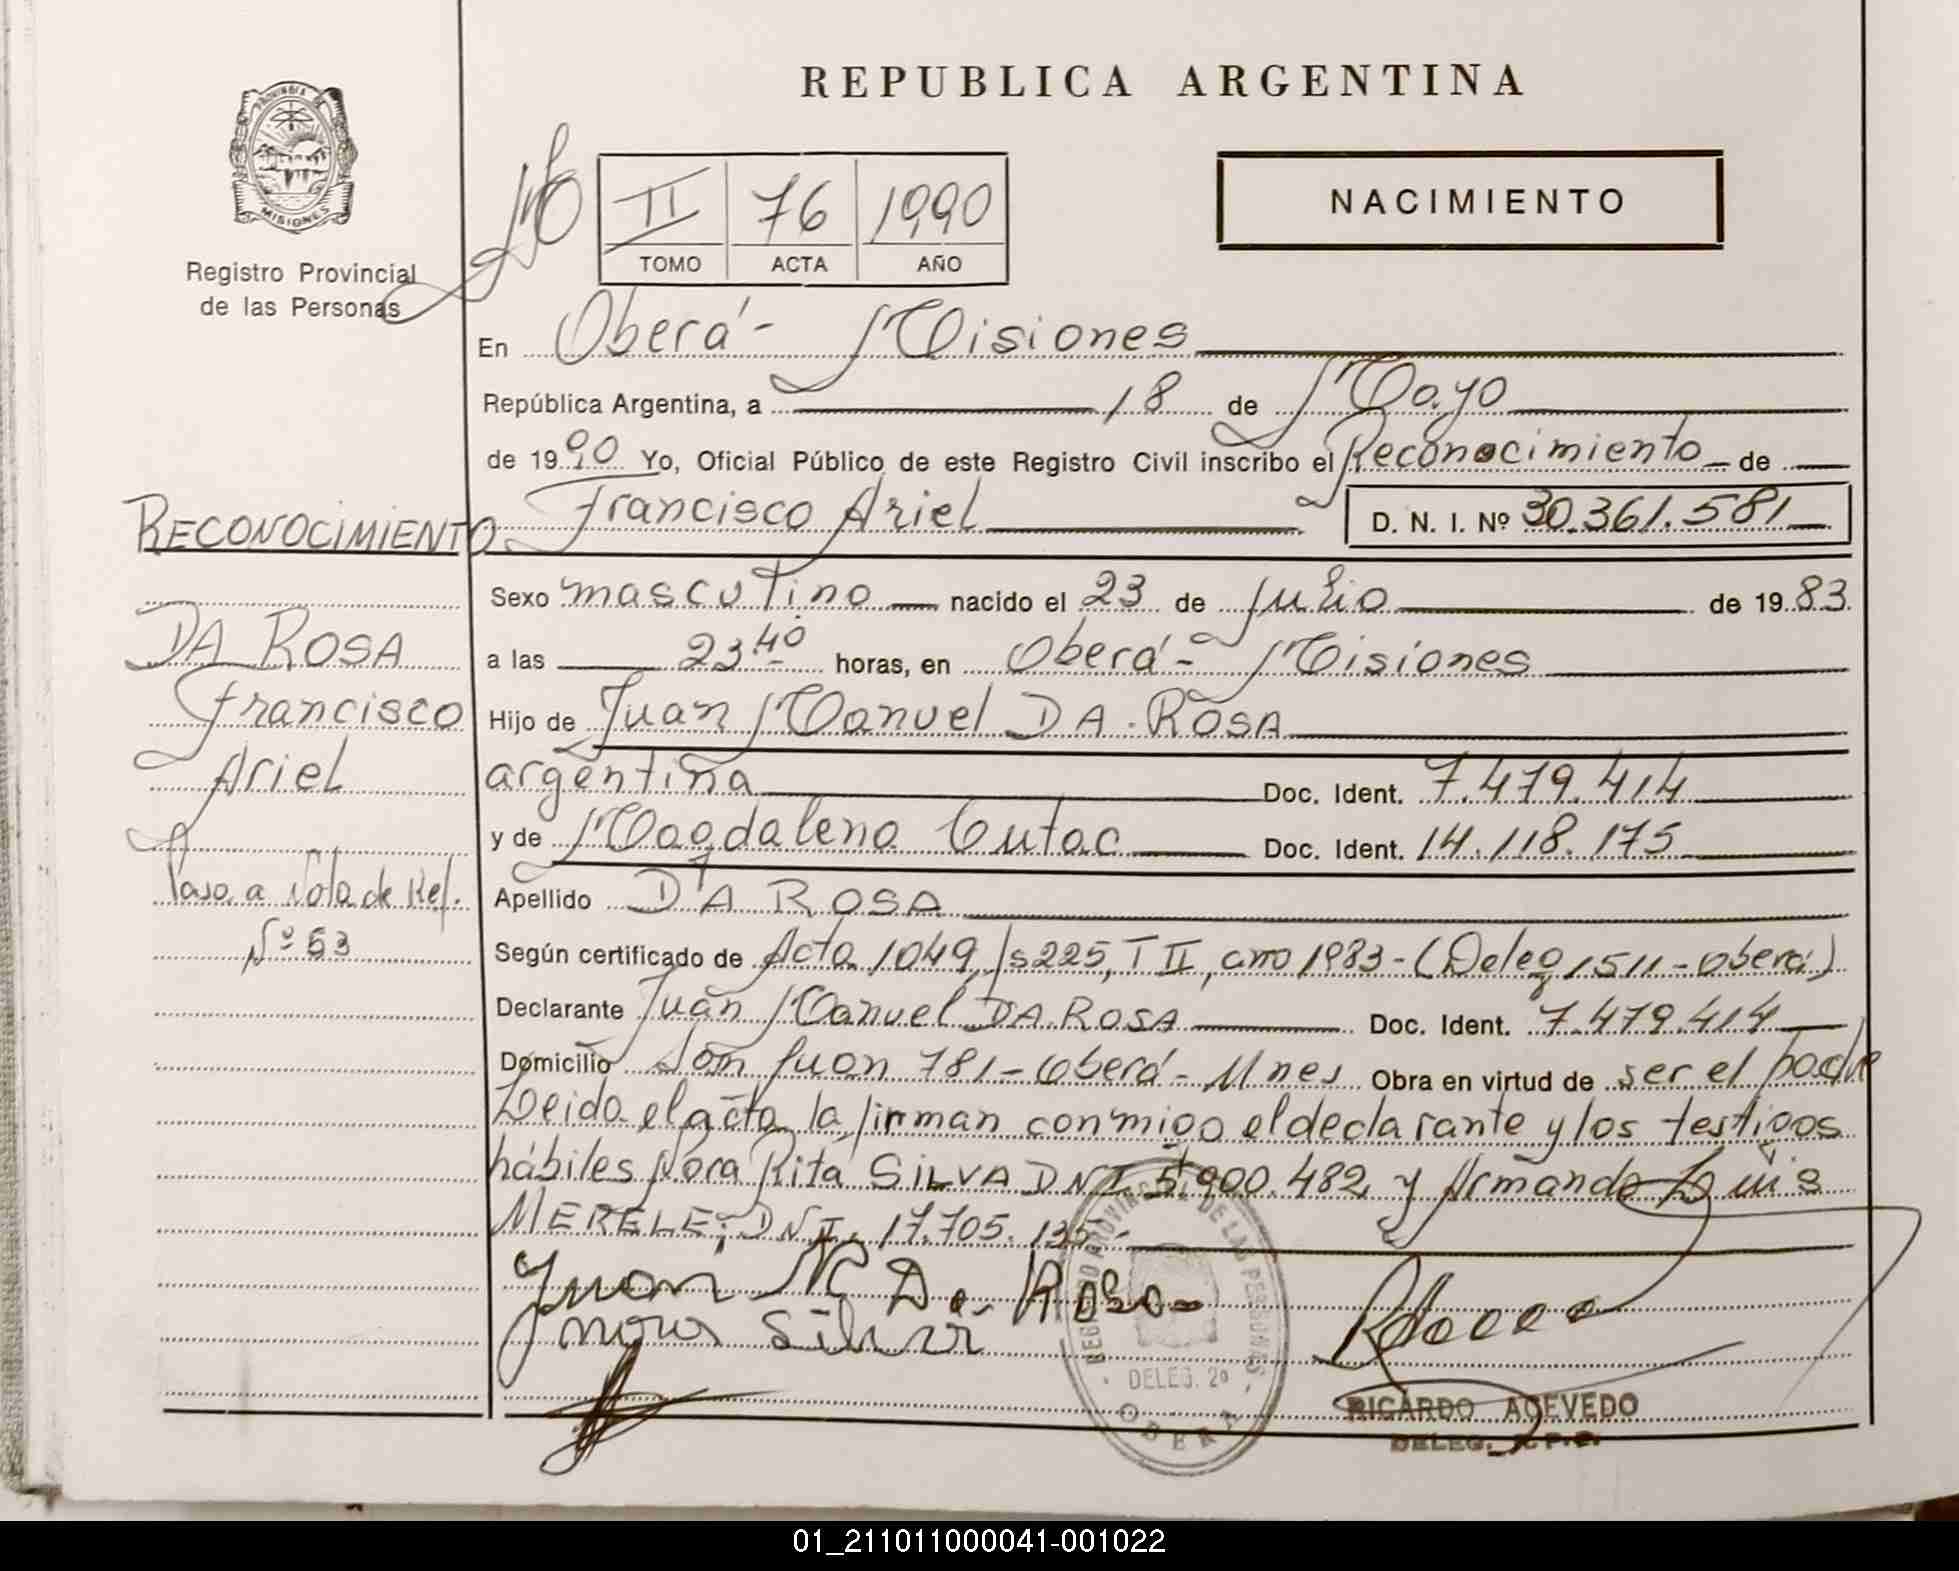 REPUBLICA ARGENTINA
PROVINCIA DE
MISIONES
Registro Provincial
de las Personas
II 76 1990
TOMO ACTA AÑO
NACIMIENTO
En Oberá - Misiones
República Argentina, a 18 de Mayo
de 1990 Yo, Oficial Público de este Registro Civil inscribo el Reconocimiento de
Francisco Ariel D. N. I. Nº 30.361.581
Sexo masculino nacido el 23 de Julio de 1983
a las 23 40 horas, en Oberá - Misiones
Hijo de Juan Manuel DA ROSA
argentina Doc. Ident. 7.479.414
y de Magdalena Cutac Doc. Ident. 14.118.175
Apellido DA ROSA
Según certificado de Acta 1049, fs 225, T II, año 1983 - (Deleg 1511 - Oberá)
Declarante Juan Manuel DA ROSA Doc. Ident. 7.479.414
Domicilio San Juan 781 - Oberá - Mnes Obra en virtud de ser el padre
Leida el acta la firman conmigo el declarante y los testigos
hábiles Nora Rita SILVA DNI 5.900.482 y Armando Luis
MERELE, DNI. 17.705.135 -
Juan M Da Rosa
Nora Silva
REGISTRO PROVINCIAL DE LAS PERSONAS
DELEG. 2º
OBERA
RICARDO ACEVEDO
DELEG. R.P.P.
RECONOCIMIENTO
DA ROSA
Francisco
Ariel
Paso a Nota de Ref.
Nº 53
01_211011000041-001022